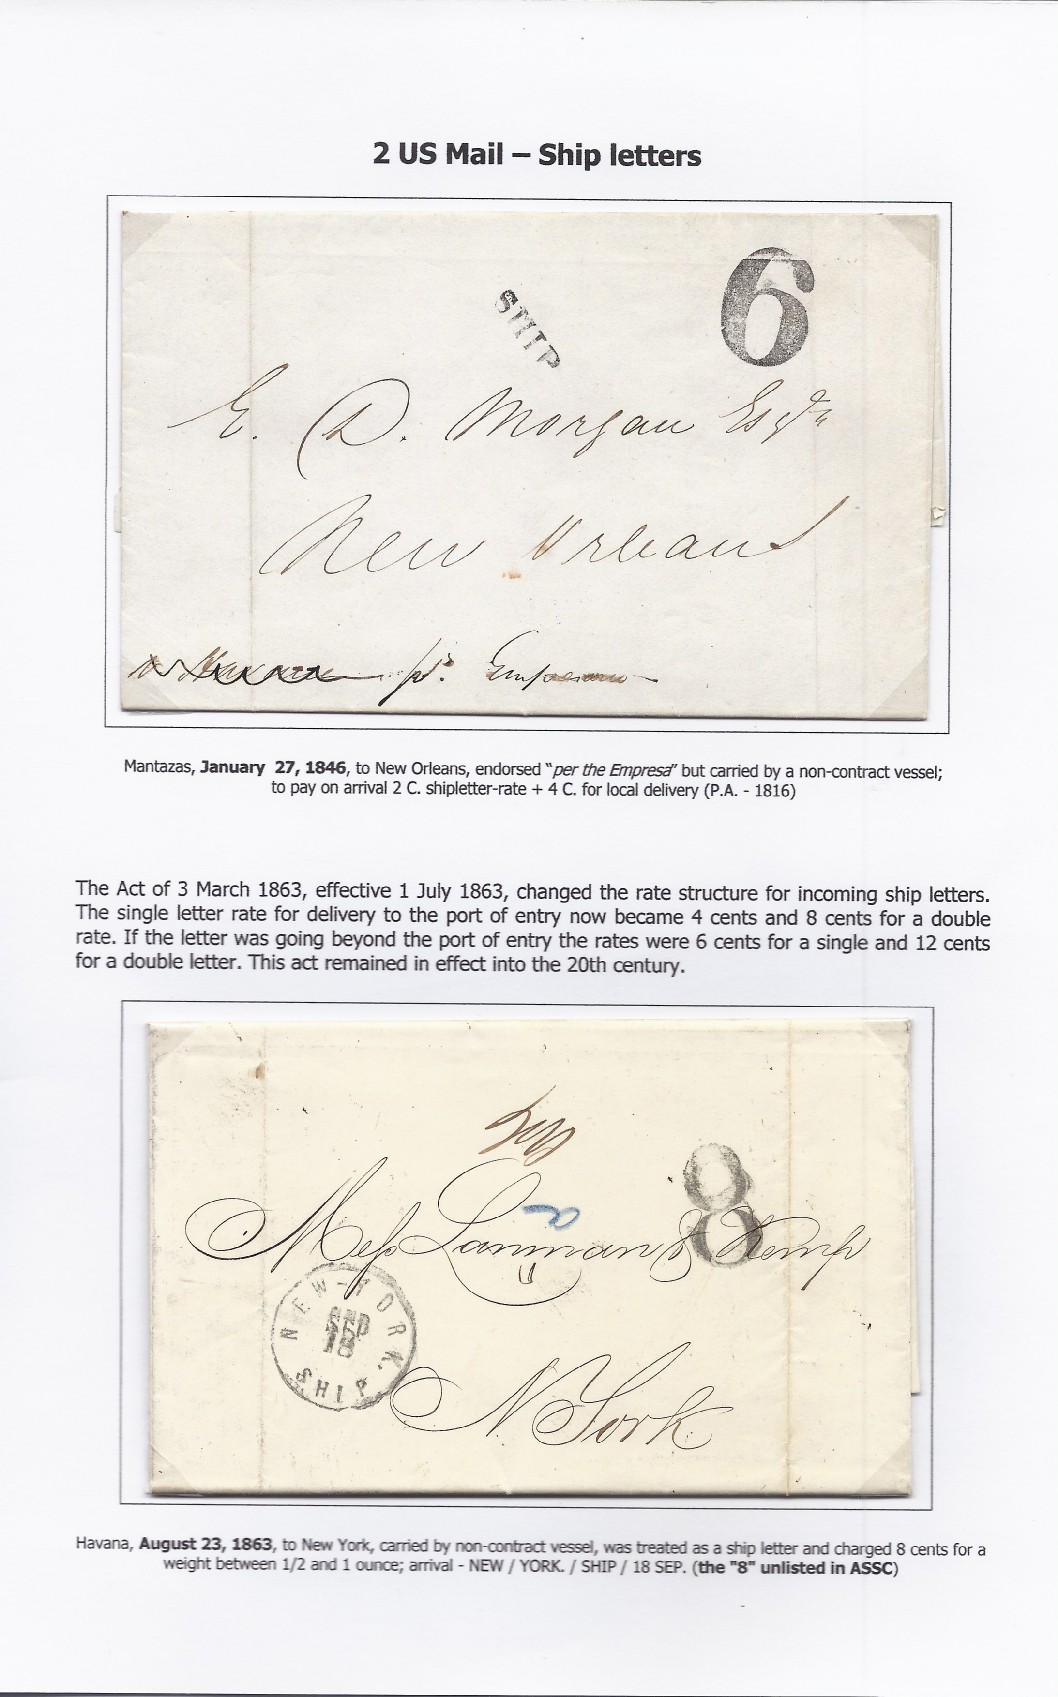 2 US Mail – Ship letters
SHIP
6
E. D. Morgan Esqr
New Orleans
pr. Empresa
Mantazas, January 27, 1846, to New Orleans, endorsed "per the Empresa" but carried by a non-contract vessel;
to pay on arrival 2 C. shipletter-rate + 4 C. for local delivery (P.A. - 1816)
The Act of 3 March 1863, effective 1 July 1863, changed the rate structure for incoming ship letters.
The single letter rate for delivery to the port of entry now became 4 cents and 8 cents for a double
rate. If the letter was going beyond the port of entry the rates were 6 cents for a single and 12 cents
for a double letter. This act remained in effect into the 20th century.
8
Mess Lanman & Kemp
NEW-YORK.
SEP
18
SHIP
N York
Havana, August 23, 1863, to New York, carried by non-contract vessel, was treated as a ship letter and charged 8 cents for a
weight between 1/2 and 1 ounce; arrival - NEW / YORK. / SHIP / 18 SEP. (the "8" unlisted in ASSC)